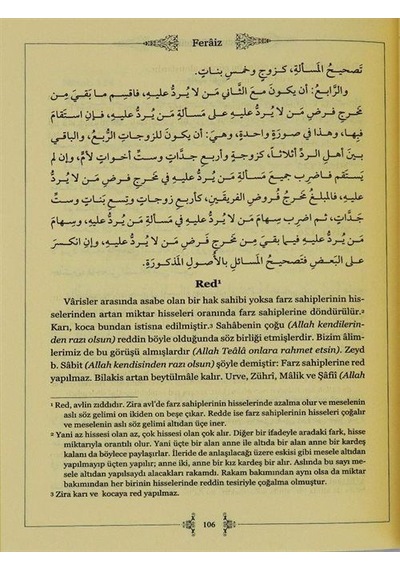 Ferâiz
تَصحيحُ المَسألةِ، كَزوجٍ وخمسِ بناتٍ.
والرَّابعُ: أن يكونَ معَ الثَّاني مَن لا يُردُّ عليهِ، فاقسِم ما بَقيَ مِن
مَخرجِ فرضِ مَن لا يُردُّ عليهِ على مَسألةِ مَن يُردُّ عليهِ، فإنِ استَقامَ
فبِها، وهذا في صورَةٍ واحدةٍ، وهيَ: أن يكونَ للزوجاتِ الرُّبعُ، والباقي
بينَ أهلِ الردِّ أثلاثاً، كزوجةٍ وأربعِ جدَّاتٍ وستِّ أخواتٍ لأمٍّ، وإن لم
يَستقِم فاضرِب جميعَ مَسألةِ مَن يُردُّ عليهِ في مَخرجِ فرضِ مَن لا يُردُّ
عليهِ، فالمبلغُ مَخرجُ فُروضِ الفريقَينِ، كأربعِ زوجاتٍ وتِسعِ بَناتٍ وستِّ
جدَّاتٍ، ثم اضرِب سِهامَ مَن لا يُردُّ عليهِ في مَسألةِ مَن يُردُّ عليهِ، وسِهامَ
مَن يُردُّ عليهِ فيما بقيَ مِن مَخرجِ فَرضِ مَن لا يُردُّ عليهِ، وإنِ انكسَرَ
على البَعضِ فتَصحيحُ المسائلِ بالأُصولِ المَذكورَةِ.
Red¹
Vârisler arasında asabe olan bir hak sahibi yoksa farz sahiplerinin his-
selerinden artan miktar hisseleri oranında farz sahiplerine döndürülür.²
Karı, koca bundan istisna edilmiştir.³ Sahâbenin çoğu (Allah kendilerin-
den razı olsun) reddin böyle olduğunda söz birliği etmişlerdir. Bizim âlim-
lerimiz de bu görüşü almışlardır (Allah Teâlâ onlara rahmet etsin). Zeyd
b. Sâbit (Allah kendisinden razı olsun) şöyle demiştir: Farz sahiplerine red
yapılmaz. Bilakis artan beytülmâle kalır. Urve, Zührî, Mâlik ve Şâfiî (Allah
¹ Red, avlin zıddıdır. Zira avl'de farz sahiplerinin hisselerinde azalma olur ve meselenin
aslı söz gelimi on ikiden on beşe çıkar. Redde ise farz sahiplerinin hisseleri çoğalır
ve meselenin aslı söz gelimi altıdan üçe iner.
² Yani az hissesi olan az, çok hissesi olan çok alır. Diğer bir ifadeyle aradaki fark, hisse
miktarıyla orantılı olur. Yani üçte bir alan anne ile altıda bir alan anne bir kardeş
kalanı da böylece paylaşırlar. İleride de anlaşılacağı üzere eskisi gibi mesele altıdan
yapılmayıp üçten yapılır; anne iki, anne bir kız kardeş bir alır. Aslında bu sayı me-
sele altıdan yapılsaydı alacakları rakamdı. Rakam bakımından aynı olsa da miktar
bakımından her birinin hisselerinde reddin tesiriyle çoğalma olmuştur.
³ Zira karı ve kocaya red yapılmaz.
106